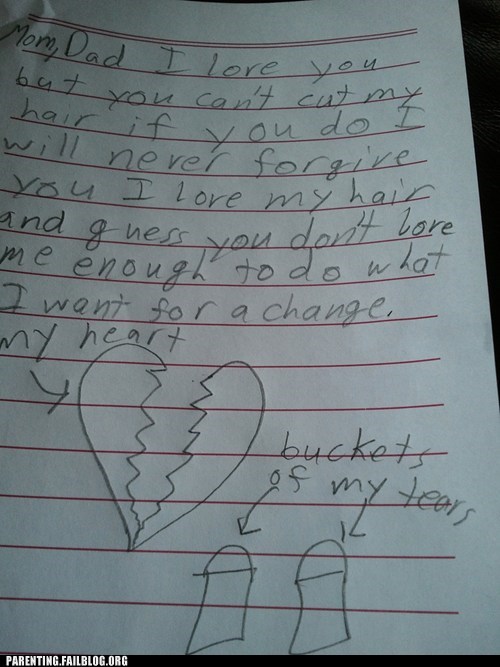 Mom, Dad I love you
but you can't cut my
hair if you do I
will never forgive
you I love my hair
and guess you don't love
me enough to do what
I want for a change.
my heart
buckets
of my tears
PARENTING.FAILBLOG.ORG